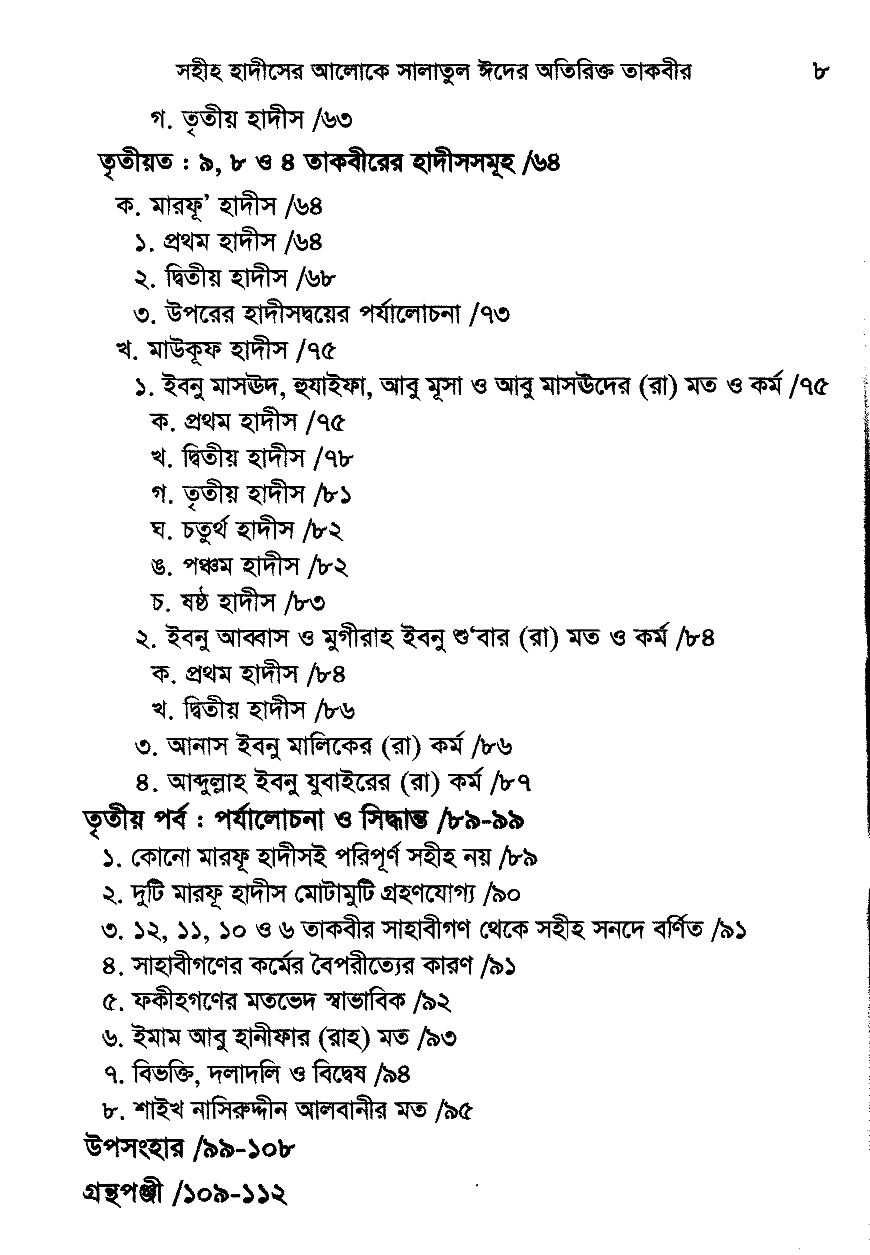 সহীহ হাদীসের আলোকে সালাতুল ঈদের অতিরিক্ত তাকবীর ৮
গ. তৃতীয় হাদীস /৬৩
তৃতীয়ত : ৯, ৮ ও ৪ তাকবীরের হাদীসসমূহ /৬৪
ক. মারফূ’ হাদীস /৬৪
১. প্রথম হাদীস /৬৪
২. দ্বিতীয় হাদীস /৬৮
৩. উপরের হাদীসদ্বয়ের পর্যালোচনা /৭৩
খ. মাউকূফ হাদীস /৭৫
১. ইবনু মাসঊদ, হুযাইফা, আবু মূসা ও আবু মাসঊদের (রা) মত ও কর্ম /৭৫
ক. প্রথম হাদীস /৭৫
খ. দ্বিতীয় হাদীস /৭৮
গ. তৃতীয় হাদীস /৮১
ঘ. চতুর্থ হাদীস /৮২
ঙ. পঞ্চম হাদীস /৮২
চ. ষষ্ঠ হাদীস /৮৩
২. ইবনু আব্বাস ও মুগীরাহ ইবনু শু‘বার (রা) মত ও কর্ম /৮৪
ক. প্রথম হাদীস /৮৪
খ. দ্বিতীয় হাদীস /৮৬
৩. আনাস ইবনু মালিকের (রা) কর্ম /৮৬
৪. আব্দুল্লাহ ইবনু যুবাইরের (রা) কর্ম /৮৭
তৃতীয় পর্ব : পর্যালোচনা ও সিদ্ধান্ত /৮৯-৯৯
১. কোনো মারফূ হাদীসই পরিপূর্ণ সহীহ নয় /৮৯
২. দুটি মারফূ হাদীস মোটামুটি গ্রহণযোগ্য /৯০
৩. ১২, ১১, ১০ ও ৬ তাকবীর সাহাবীগণ থেকে সহীহ সনদে বর্ণিত /৯১
৪. সাহাবীগণের কর্মের বৈপরীত্যের কারণ /৯১
৫. ফকীহগণের মতভেদ স্বাভাবিক /৯২
৬. ইমাম আবু হানীফার (রাহ) মত /৯৩
৭. বিভক্তি, দলাদলি ও বিদ্বেষ /৯৪
৮. শাইখ নাসিরুদ্দীন আলবানীর মত /৯৫
উপসংহার /৯৯-১০৮
গ্রন্থপঞ্জী /১০৯-১১২